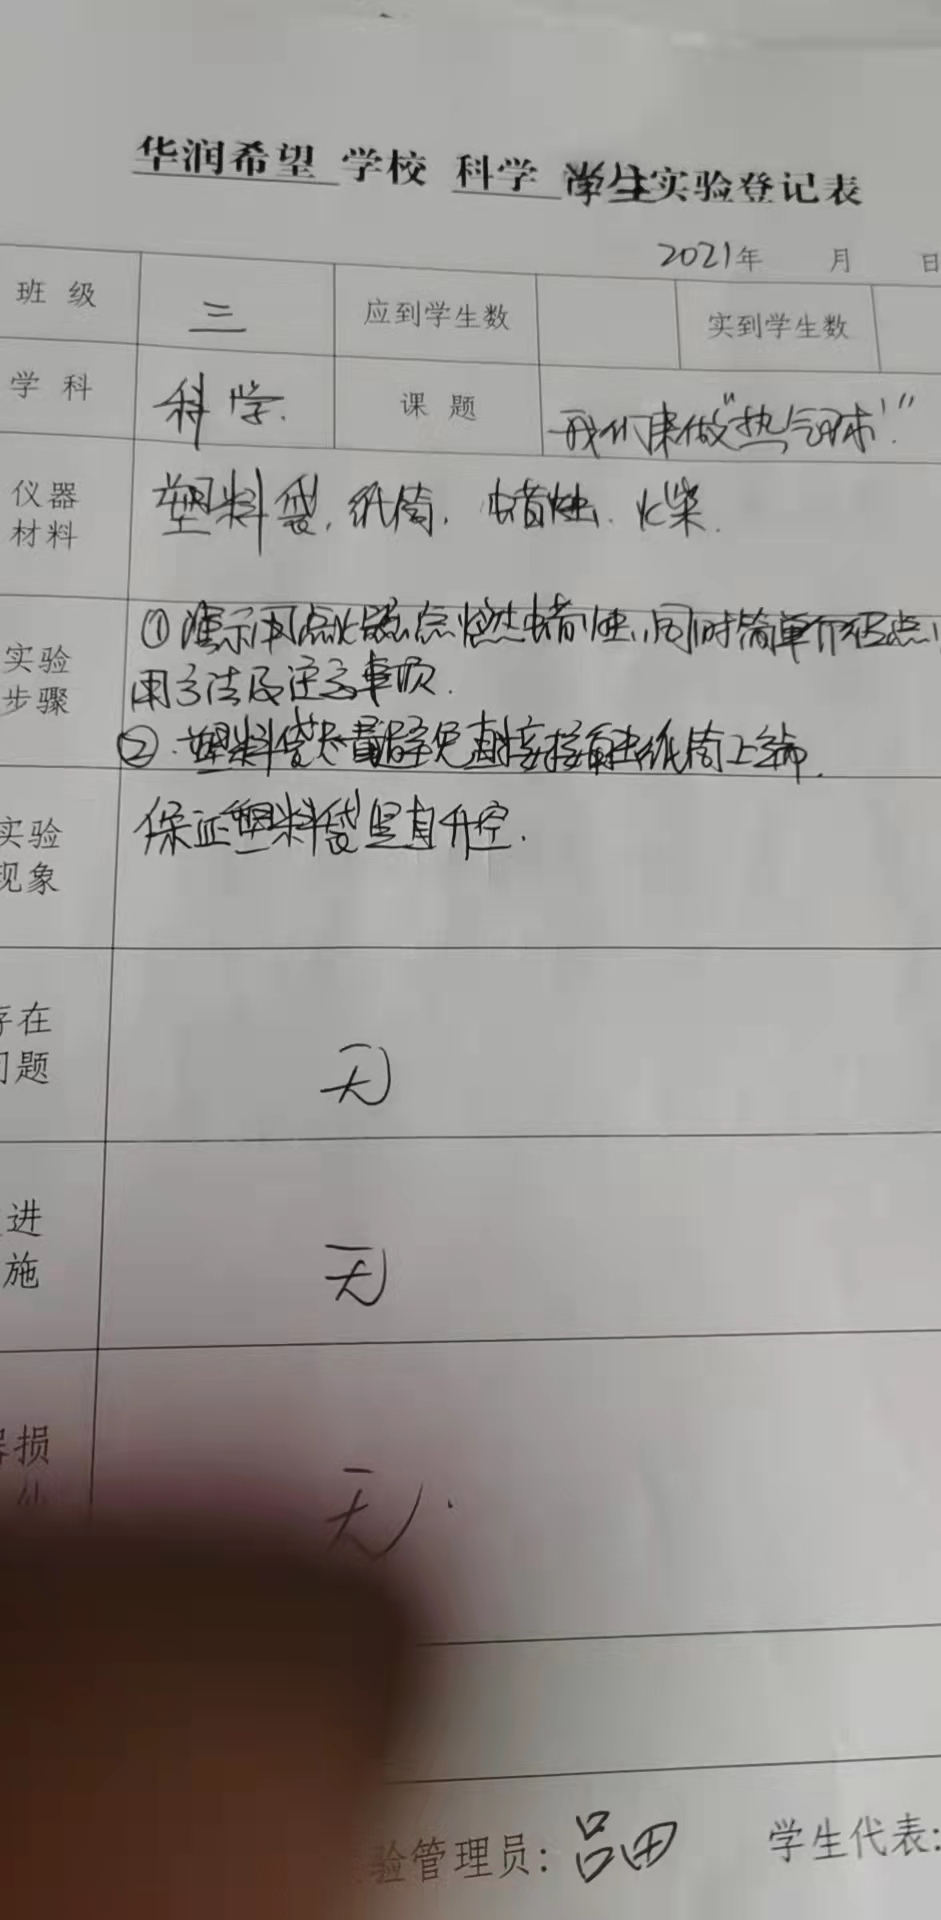 华润希望 学校 科学 学生实验登记表
2021年 月 日
班 级 三 应到学生数 实到学生数
学 科 科学. 课 题 我们来做“热气球!”
仪器
材料
塑料袋, 纸筒, 蜡烛, 火柴.
实验
步骤
①演示用点火器点燃蜡烛,同时简单介绍
用方法及注意事项.
②.塑料袋尽量避免直接接触纸筒上端.
实验
现象
保证塑料袋竖直升空.
存在
问题
无
进
施
无
损
无.
验管理员: 吕田 学生代表: